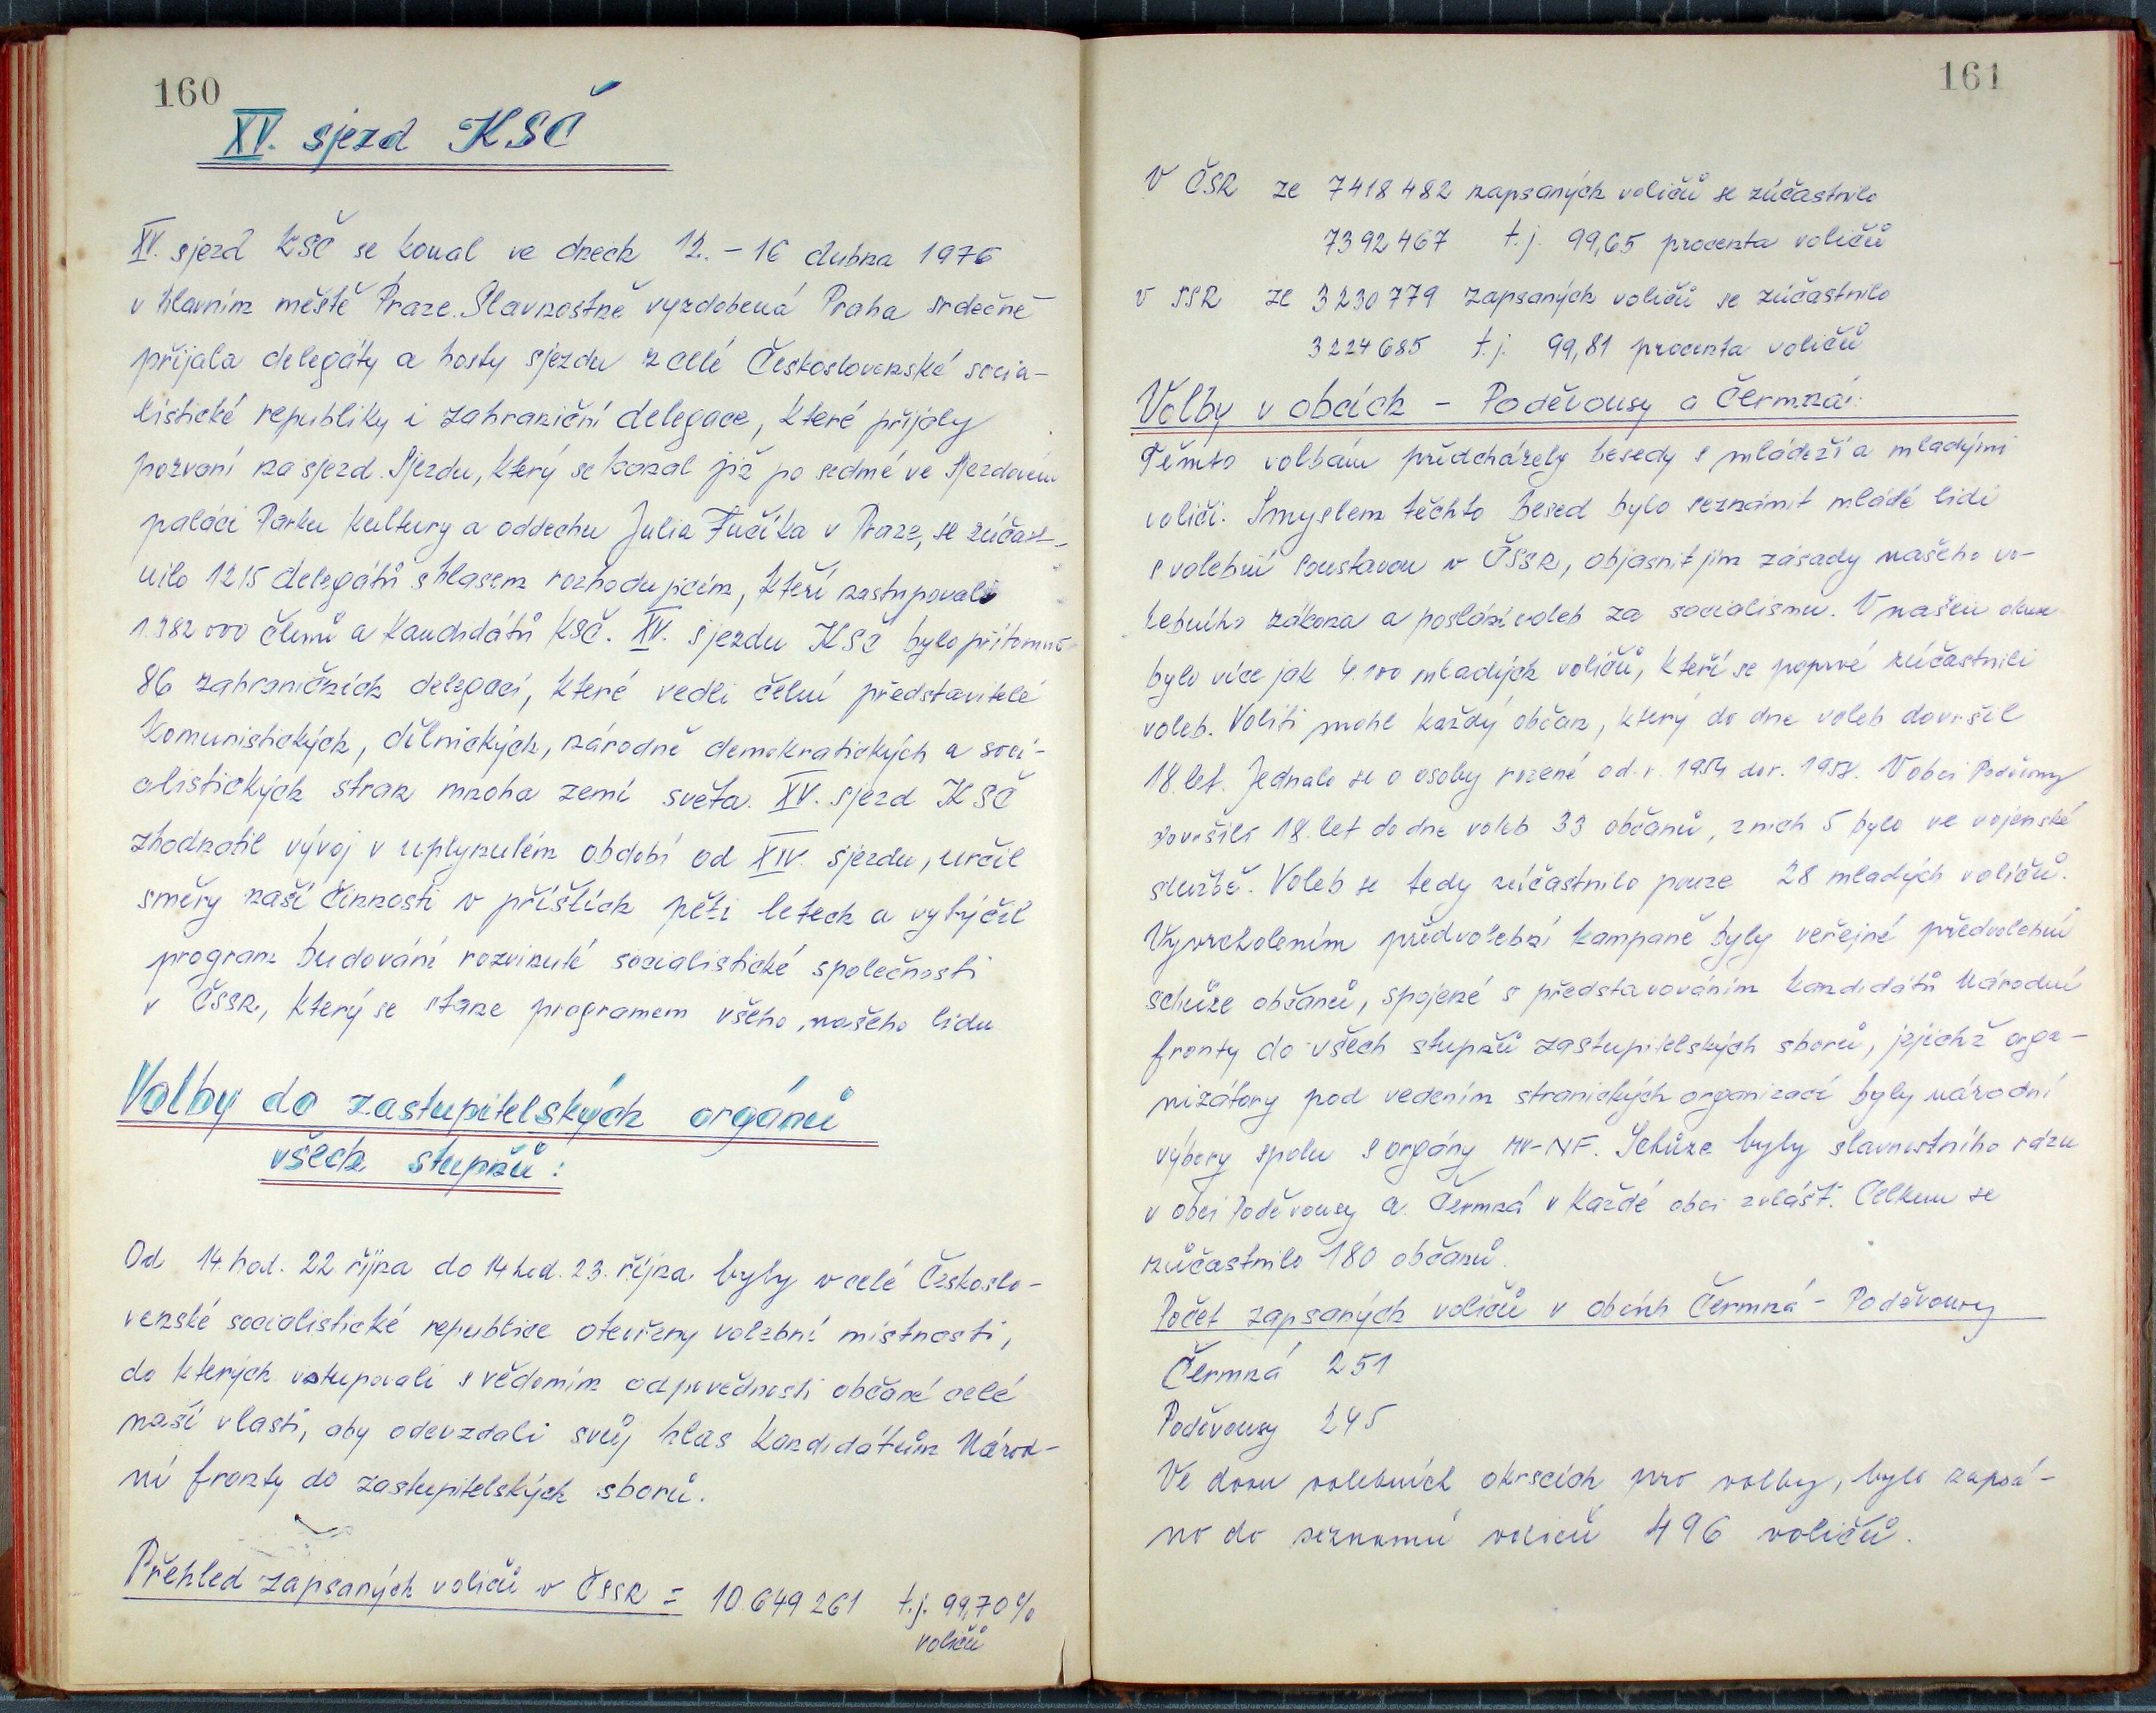 160
XV. sjezd KSČ
XV. sjezd KSČ se konal ve dnech 12. - 16 dubna 1976
v hlavním městě Praze. Slavnostně vyzdobená Praha srdečně
přijala delegáty a hosty sjezdu z celé Československé socia-
listické republiky i zahraniční delegace, které přijaly
pozvaní na sjezd. Sjezdu, který se konal již po sedmé ve Sjezdovém
paláci Parku kultury a oddechu Julia Fučíka v Praze, se zúčast-
nilo 1215 delegátů s hlasem rozhodujícím, kteří zastupovali
1382 000 členů a kandidátů KSČ. XV. sjezdu KSČ bylo přítomno
86 zahraničních delegací, které vedli čelní představitelé
komunistických, dělnických, národně demokratických a soci-
alistických stran mnoha zemí světa. XV. sjezd KSČ
zhodnotil vývoj v uplynulém období od XIV. sjezdu, určil
směry naší činnosti v příštích pěti letech a vytýčil
program budování rozvinuté socialistické společnosti
v ČSSR, který se stane programem všeho našeho lidu
Volby do zastupitelských orgánů
všech stupňů:
Od 14 hod. 22 října do 14 hod. 23. října byly v celé Českoslo-
venské socialistické republice otevřeny volební místnosti,
do kterých vstupovali s vědomím odpovědnosti občané celé
naší vlasti, aby odevzdali svůj hlas kandidátům Národ-
ní fronty do zastupitelských sborů.
Přehled zapsaných voličů v ČSSR = 10 649 261 t.j. 99,70 %
voličů
161
V ČSR ze 7418 482 zapsaných voličů se zúčastnilo
7392 467 t.j. 99,65 procenta voličů
v SSR ze 3230 779 zapsaných voličů se zúčastnilo
3224 685 t.j. 99,81 procenta voličů
Volby v obcích - Poděvousy a Čermná:
Těmto volbám předcházely besedy s mládeží a mladými
voliči. Smyslem těchto besed bylo seznámit mládé lidi
s volební soustavou v ČSSR, objasnit jim zásady našeho vo-
lebního zákona a poslání voleb za socialismu. V našem okrese
bylo více jak 4.100 mladých voličů, kteří se poprvé zúčastnili
voleb. Voliti mohl každý občan, který do dne voleb dovršil
18. let. Jednalo se o osoby rozené od r. 1954 do r. 1958. V obci Poděvousy
dovršilo 18. let do dne voleb 33 občanů, z nich 5 bylo ve vojenské
službě. Voleb se tedy zúčastnilo pouze 28 mladých voličů.
Vyvrcholením předvolební kampaně byly veřejné předvolební
schůze občanů, spojené s představováním kandidátů Národní
fronty do všech stupňů zastupitelských sborů, jejichž orga-
nizátory pod vedením stranických organizací byly národní
výbory spolu s orgány MV-NF. Schůze byly slavnostního rázu
v obci Poděvousy a Čermná v každé obci zvlášť. Celkem se
zůčastnilo 180 občanů.
Počet zapsaných voličů v obcích Čermná - Poděvousy
Čermná 251
Poděvousy 245
Ve dvou volebních okrscích pro volby, bylo zapsá-
no do seznamů voličů 496 voličů.